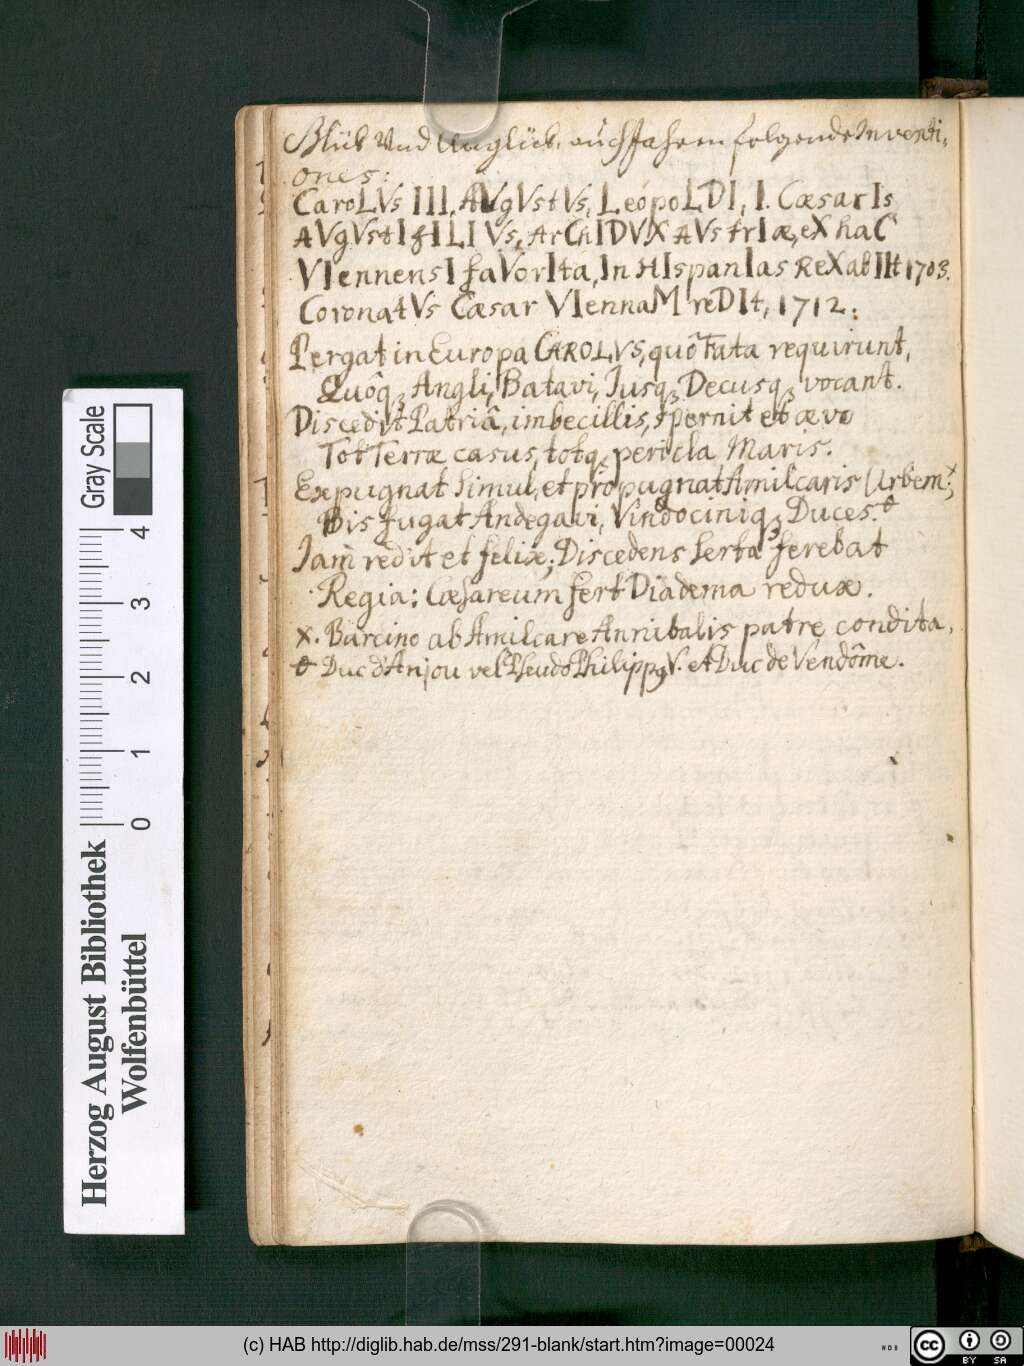 Glük Und Unglück, auch Jahren folgende Inventi,
ones:
CaroLVs III, AVgVstVs, LeopoLDI, I. Cæsar Is
AVgVstI fILIVs, ArChIDVX AVstrIæ, eX haC
VIennensI faVorIta, In HIspanIas ReX abIIt 1703.
CoronatVs Cæsar VIennaM reDIt, 1712:
Pergat in Europa CAROLVS, quô Fata requirunt,
Quôq₃ Angli, Batavi, Jusq₃ Decusq₃ vocant.
Discedit Patriâ, imbecillis, spernit et ævo
Tot Terræ casus, totq₃ pericla Maris.
Expugnat simul, et propugnat Amilcaris Urbem;
Bis fugat Andegavi, Vindociniq₃ Duces.
Jam redit et felix; Discedens serta ferebat
Regia: Cæsareum fert Diadema redux.
x. Barcino ab Amilcare Annibalis patre condita,
Duc d'Anjou vel Pseudo Philipp9 V. et Duc de Vendôme.
Herzog August Bibliothek
Wolfenbüttel
0 1 2 3 4
Gray Scale
(c) HAB http://diglib.hab.de/mss/291-blank/start.htm?image=00024
WDB
cc BY SA